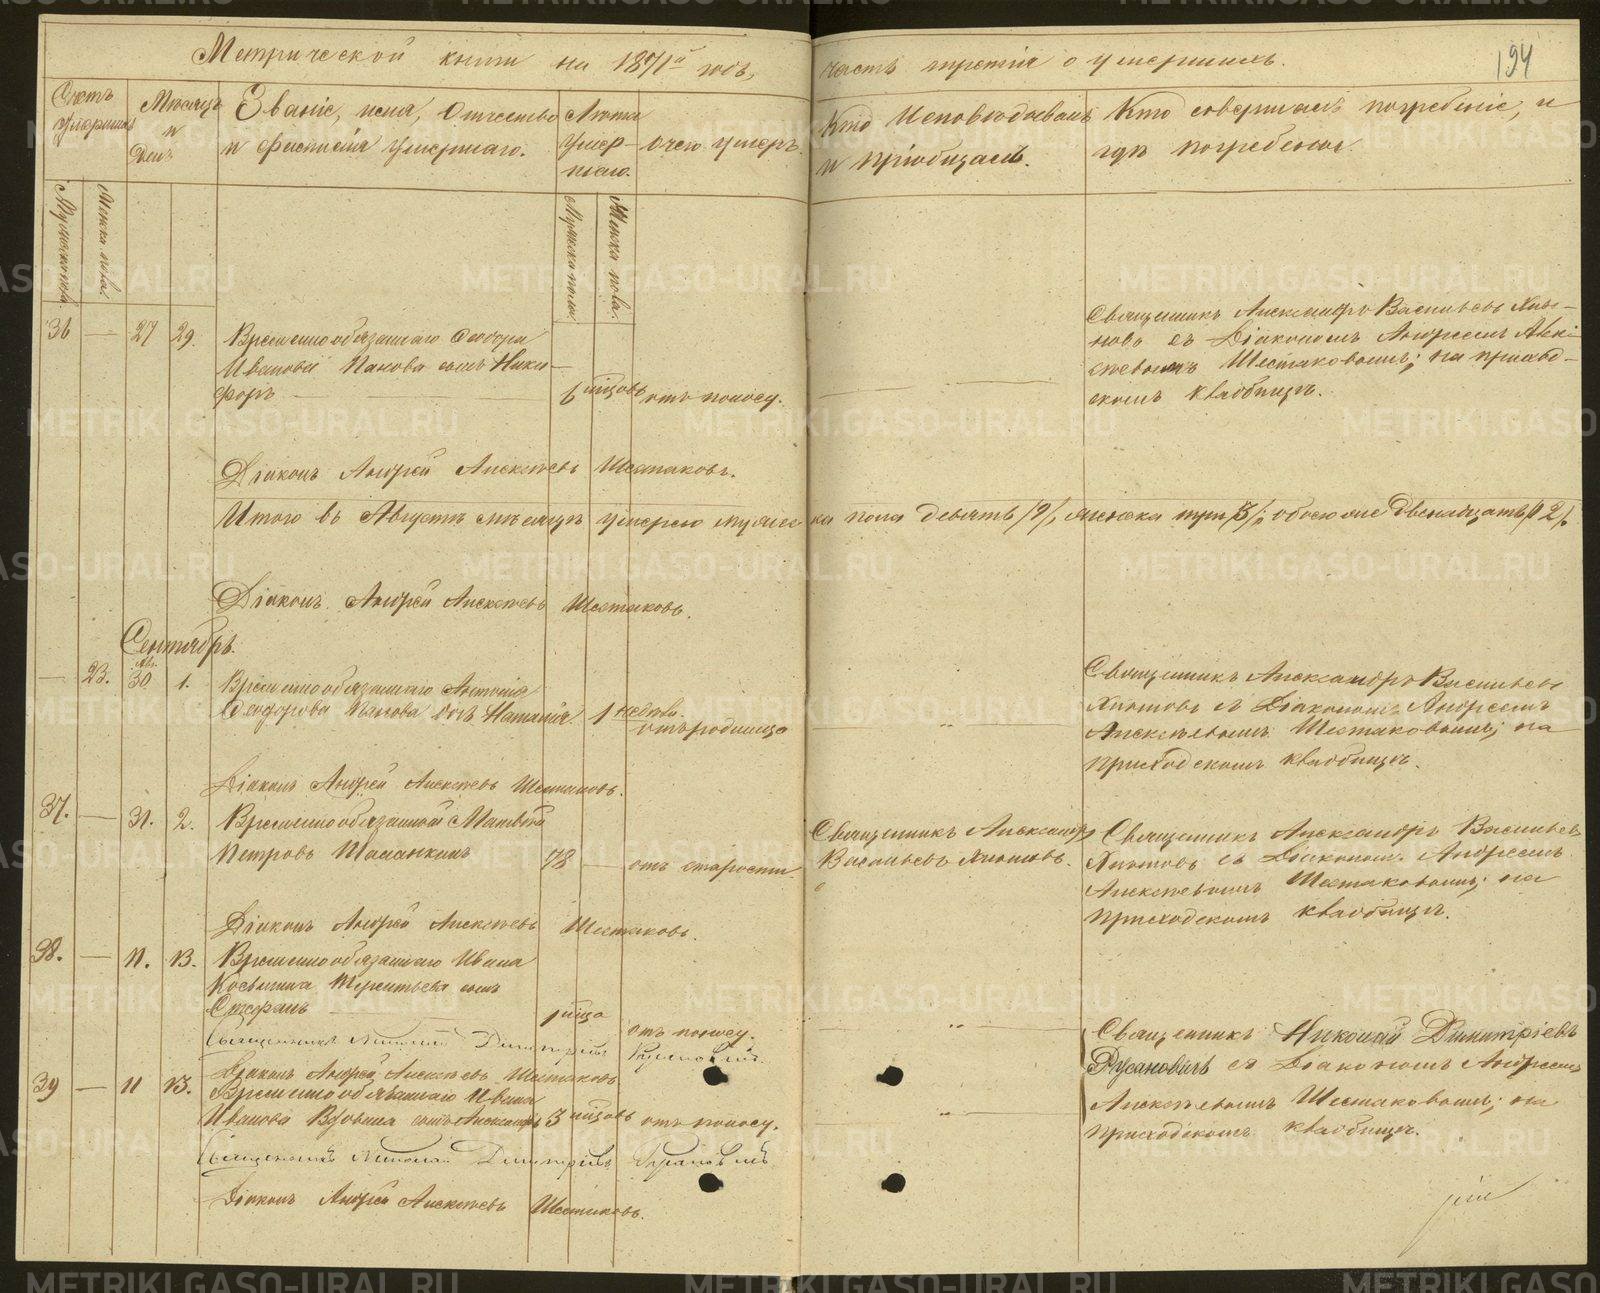 Метрической книги на 1871й годъ,
часть третія о умершихъ.
194
Счетъ умершихъ
Мѣсяцъ и День
Званіе, имя, отчество и фамилія умершаго.
Лѣта умершаго.
Отчего умеръ.
Кто Исповѣдовалъ и пріобщалъ.
Кто совершалъ погребеніе, и гдѣ погребены
Мужеска пола
Женска пола.
Мужеска пола.
Женска пола.
36 — 27 29.
Временнообязаннаго Ѳеодора
Иванова Панова сынъ Ники-
форъ
6 мѣсяцовъ
отъ поносу.
Священникъ Александръ Васильевъ
съ Діакономъ Андреемъ Алек-
сѣевымъ Шестаковымъ; на приход-
скомъ кладбищѣ.
Діаконъ Андрей Алексѣевъ Шестаковъ.
Итого въ Августѣ мѣсяцѣ умерло мужеска пола девять /9/, женска три /3/; обоего же двенадцать /12/.
Діаконъ Андрей Алексѣевъ Шестаковъ.
Сентябрь.
— 23. Авг. 30 1.
Временнообязаннаго Антонія
Ѳеодорова Панова дочь Наталія
1 недѣли.
отъ родимца
Священникъ Александръ Васильевъ
съ Діакономъ Андреемъ
Алексѣевымъ Шестаковымъ; на
Приходскомъ кладбищѣ.
Діаконъ Андрей Алексѣевъ Шестаковъ.
37. — 31. 2.
Временнообязанный Матвей
Петровъ
78 —
отъ старости
Священникъ Александръ
Васильевъ
Священникъ Александръ Васильевъ
съ Діакономъ Андреемъ
Алексѣевымъ Шестаковымъ; на
Приходскомъ кладбищѣ.
Діаконъ Андрей Алексѣевъ Шестаковъ.
38. — 11. 13.
Временнообязаннаго Ивана
Козьмина Терентьева сынъ
Стефанъ
1 мѣсяца
отъ поносу.
Священникъ Николай Димитріевъ Русановичъ
Діаконъ Андрей Алексѣевъ Шестаковъ
39 — 11 13.
Временнообязаннаго Ивана
Иванова Вдовина сынъ Александръ
3 мѣсяцовъ
отъ поносу.
Священникъ Николай Димитріевъ
Русановичъ съ Діакономъ Андреемъ
Алексѣевымъ Шестаковымъ; на
Приходскомъ кладбищѣ.
Священникъ Николай Димитріевъ Русановичъ
Діаконъ Андрей Алексѣевъ Шестаковъ.
METRIKI.GASO-URAL.RU